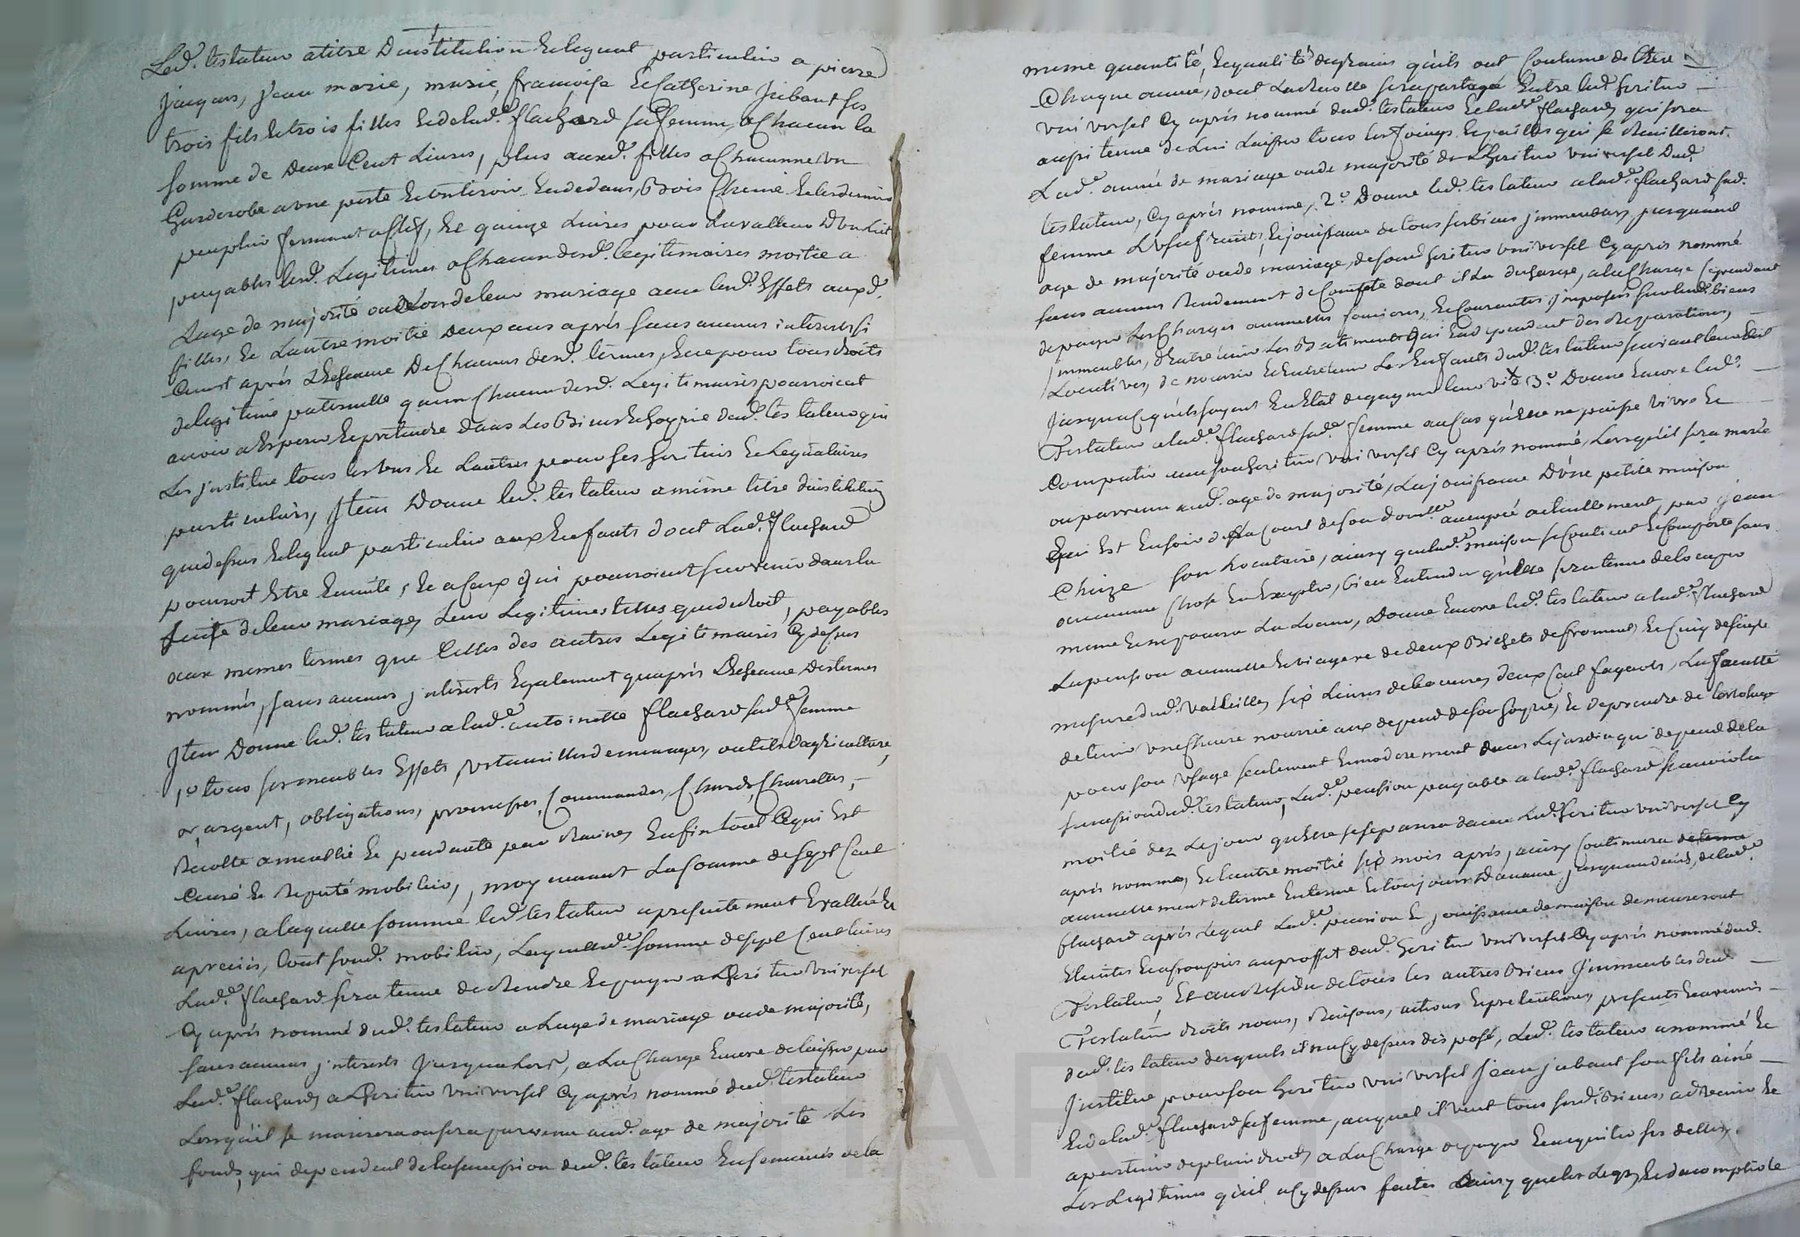 Led. testateur a titre d'institution et legat particulier a pierre
jacques, jean marie, marie, françoise et Catherine jubant ses
trois fils et trois filles et de lad.e flachard sa femme, a Chacun la
somme de deux Cent Livres, plus auxd. filles a Chacune un
Garderobe a une porte et un tiroir en dedans, Bois Chene et
peuplier fermant a Clef, et quinze Livres pour la valleur d'un Lit
payables lesd. Legitimes a Chacun desd. legitimaires moitié a
L'age de majorité ou de Lors de leur mariage avec lesd. Effets auxd.
filles, et L'autre moitié deux ans après sans aucuns interets si
Ce n'est après L'Echeance de Chacuns desd. termes, et ce pour tous droits
de legitime paternelle qu'un Chacun desd. Legitimaires pourroient
avoir a Esperer et pretendre dans Les Biens et hoyrie dud. testateur qui
Les institue tous Les uns et Lautres pour ses heritiers et Legataires
particuliers, Item Donne led. testateur a même titre d'institution
que dessus et legat particulier aux Enfants dont Lad.e flachard
pourroit Etre Enceinte, et a Ceux qui pourroient survenir dans la
suite de leur mariage, Leur Legitime telles que de droit, payables
aux memes termes que Celles des autres Legitimaires Cy dessus
nommés, sans aucuns interets Egalement qu'après L'Echeance des termes
Item Donne led. testateur a lad.e antoinette flachard sad.e femme
1.o tous ses meubles Effets, ustancilles de menages, outils d'agriculture,
or, argent, obligations, promesses, Commandes, Chards, Charettes, –
Recolte ameublie et pendante par Racines Enfin tout Ce qui Est
Censé et reputé mobilier, moyennant La somme de sept Cent
Livres, a laquelle somme led. testateur a presentement Evallué et
apprecié, tout sond. mobilier, Laquelle somme de sept Cent livres
Lad.e flachard sera tenue de Rendre et payer a L'heritier universel
Cy après nommé dud. testateur a L'age de mariage ou de majorité,
sans aucuns interets jusqu'alors, a La Charge Encore de laisser par
Lad.e flachard a L'heritier universel Cy après nommé dud. testateur
Lorsqu'il se mariera ou sera parvenu aud. age de majorité Les
fonds qui dependent de la succession dud. testateur Ensemencés de la
meme quantité, et qualité de grains qu'ils ont Coutume de L'etre
Chaque année, dont La Recolte sera partagée Entre led. heritier –
universel Cy après nommé dud. testateur et lad.e flachard, qui sera
aussi tenue de Lui Laisser tous les foings et pailles qui se Recuilleront
Lad. année de mariage ou de majorité de L'heritier universel dud.
testateur, Cy après nommé, 2.o Donne led. testateur a lad.e flachard sad.
femme L'usufruit et jouissance de tous ses biens immeubles, jusqu'aud.
age de majorité ou de mariage, de sond. heritier universel Cy après nommé
sans aucun Rendement de Compte dont il La decharge, a la Charge Cependant
de payer Les Charges annuelles foncieres, et Courantes imposées sur lesd. biens
immeubles, d'Entretenir Les Batiments qui En dependent des Reparations
Locatives, de nourrir et Entretenir Les Enfants dud. testateur suivant leur Etat
jusqu'a Ce qu'ils soyent En Etat de gagner leur vie 3.o Donne Encore led.
Testateur a lad.e flachard sad.e femme au Cas qu'Elle ne puisse vivre et
Compatir avec son heritier universel Cy après nommé, Lorsqu'il sera marié
ou parvenu aud. age de majorité, La jouissance D'une petite maison
Qui Est En soir de La Court de son domille occupée actuellement, par jean
Chize son Locataire, ainsy que lad.e maison se Contient et Comporte sans
aucune Chose En Excepter, bien Entendu qu'Elle sera tenue de l'occuper
meme et ne pourra La Louer, Donne Encore led. testateur a lad.e flachard
La pension annuelle et viagere de deux Bichets de froment, et Cinq de seigle
mesure dud. six Livres de beurre, deux Cent fagots, La faculté
de tenir une Chevre nourrie aux depend de son hoyrie, et de prendre de l'ortolage
pour son usage seulement et moderement dans Le jardin qui depend de la
succession dud. testateur, Lad.e pension payable a lad.e flachard sa veuve
moitié dez Le jour qu'Elle se separera d'avec Led. heritier universel Cy
après nommé, et L'autre moitié six mois après, ainsy Continuera
annuellement de terme En terme et toujours d'avance jusqu'au deces de lad.e
flachard après Lequel Lad.e pension et jouissance de maison demeureront
Eteintes et assoupies au proffit dud. heritier universel Cy après nommé dud.
Testateur, Et au Residu de tous les autres Biens immeubles dud. –
Testateur droits noms, Raisons, actions et pretentions, presents et avenirs –
dud. testateur desquels il n'a Cy dessus disposé, Led. testateur a nommé et
institué pour son heritier universel jean jubant son fils ainé
et de lad.e flachard sa femme, auquel il veut tous sesd. Biens, advenir et
apartenir de plein droit, a La Charge de payer et acquitter ses dettes,
Les Legitimes qu'il a Cy dessus faites ainsy que les Legs, et d'accomplir le